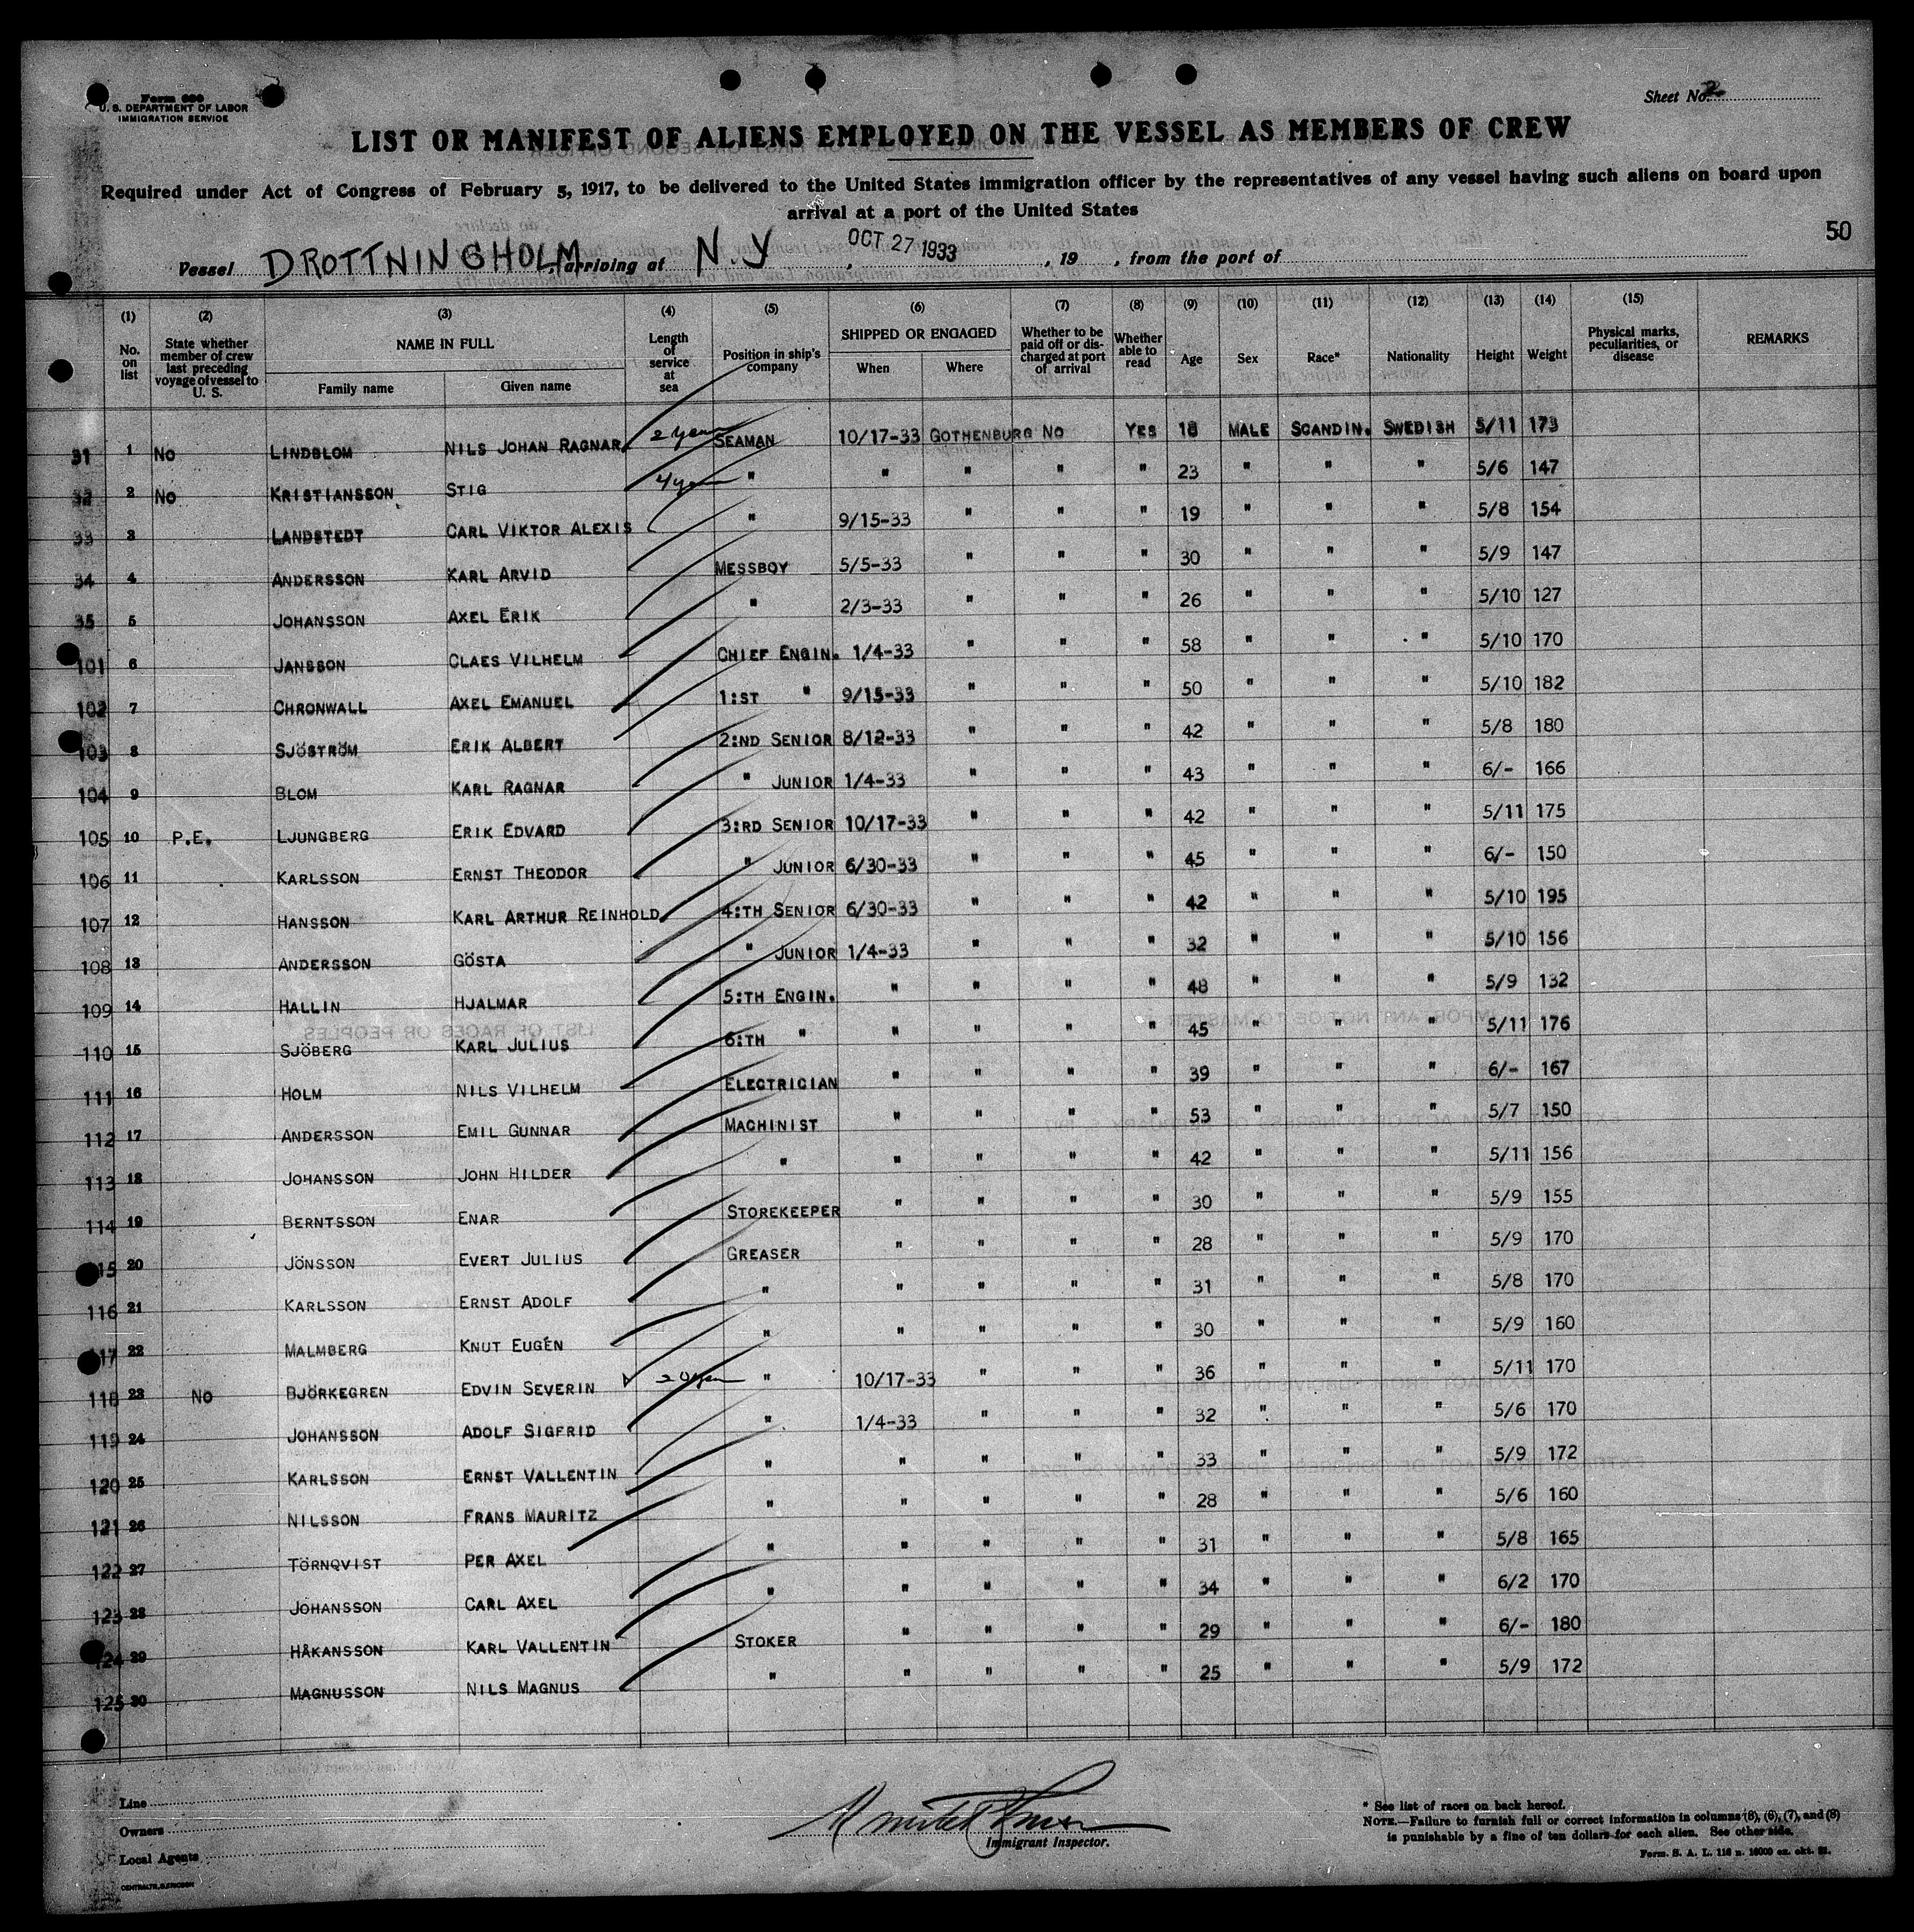 Form 680
U. S. DEPARTMENT OF LABOR
IMMIGRATION SERVICE
Sheet No. 2
LIST OR MANIFEST OF ALIENS EMPLOYED ON THE VESSEL AS MEMBERS OF CREW
Required under Act of Congress of February 5, 1917, to be delivered to the United States immigration officer by the representatives of any vessel having such aliens on board upon
arrival at a port of the United States
50
Vessel DROTTNINGHOLM, arriving at N.Y, OCT 27 1933, 19 , from the port of
(1) No. on list (2) State whether member of crew last preceding voyage of vessel to U. S. (3) NAME IN FULL Family name Given name (4) Length of service at sea (5) Position in ship's company (6) SHIPPED OR ENGAGED When Where (7) Whether to be paid off or discharged at port of arrival (8) Whether able to read (9) Age (10) Sex (11) Race* (12) Nationality (13) Height (14) Weight (15) Physical marks, peculiarities, or disease REMARKS
31 1 No LINDBLOM NILS JOHAN RAGNAR 2 years SEAMAN 10/17-33 GOTHENBURG No YES 18 MALE SCANDIN. SWEDISH 5/11 173
32 2 No KRISTIANSSON STIG 4 years " " " " " 23 " " " 5/6 147
33 3 LANDSTEDT CARL VIKTOR ALEXIS " 9/15-33 " " " 19 " " " 5/8 154
34 4 ANDERSSON KARL ARVID MESSBOY 5/5-33 " " " 30 " " " 5/9 147
35 5 JOHANSSON AXEL ERIK " 2/3-33 " " " 26 " " " 5/10 127
101 6 JANSSON CLAES VILHELM CHIEF ENGIN. 1/4-33 " " " 58 " " " 5/10 170
102 7 CHRONWALL AXEL EMANUEL 1:ST " 9/15-33 " " " 50 " " " 5/10 182
103 8 SJÖSTRÖM ERIK ALBERT 2:ND SENIOR 8/12-33 " " " 42 " " " 5/8 180
104 9 BLOM KARL RAGNAR " JUNIOR 1/4-33 " " " 43 " " " 6/- 166
105 10 P.E. LJUNGBERG ERIK EDVARD 3:RD SENIOR 10/17-33 " " " 42 " " " 5/11 175
106 11 KARLSSON ERNST THEODOR " JUNIOR 6/30-33 " " " 45 " " " 6/- 150
107 12 HANSSON KARL ARTHUR REINHOLD 4:TH SENIOR 6/30-33 " " " 42 " " " 5/10 195
108 13 ANDERSSON GÖSTA " JUNIOR 1/4-33 " " " 32 " " " 5/10 156
109 14 HALLIN HJALMAR 5:TH ENGIN. " " " " 48 " " " 5/9 132
110 15 SJÖBERG KARL JULIUS 6:TH " " " " " 45 " " " 5/11 176
111 16 HOLM NILS VILHELM ELECTRICIAN " " " " 39 " " " 6/- 167
112 17 ANDERSSON EMIL GUNNAR MACHINIST " " " " 53 " " " 5/7 150
113 18 JOHANSSON JOHN HILDER " " " " " 42 " " " 5/11 156
114 19 BERNTSSON ENAR STOREKEEPER " " " " 30 " " " 5/9 155
115 20 JÖNSSON EVERT JULIUS GREASER " " " " 28 " " " 5/9 170
116 21 KARLSSON ERNST ADOLF " " " " " 31 " " " 5/8 170
117 22 MALMBERG KNUT EUGÉN " " " " " 30 " " " 5/9 160
118 23 No BJÖRKEGREN EDVIN SEVERIN 20 years " 10/17-33 " " " 36 " " " 5/11 170
119 24 JOHANSSON ADOLF SIGFRID " 1/4-33 " " " 32 " " " 5/6 170
120 25 KARLSSON ERNST VALLENTIN " " " " " 33 " " " 5/9 172
121 26 NILSSON FRANS MAURITZ " " " " " 28 " " " 5/6 160
122 27 TÖRNQVIST PER AXEL " " " " " 31 " " " 5/8 165
123 28 JOHANSSON CARL AXEL " " " " " 34 " " " 6/2 170
124 29 HÅKANSSON KARL VALLENTIN STOKER " " " " 29 " " " 6/- 180
125 30 MAGNUSSON NILS MAGNUS " " " " " 25 " " " 5/9 172
Line
Owners
Local Agents
Immigrant Inspector.
* See list of races on back hereof.
NOTE.—Failure to furnish full or correct information in columns (3), (6), (7), and (8)
is punishable by a fine of ten dollars for each alien. See other side.